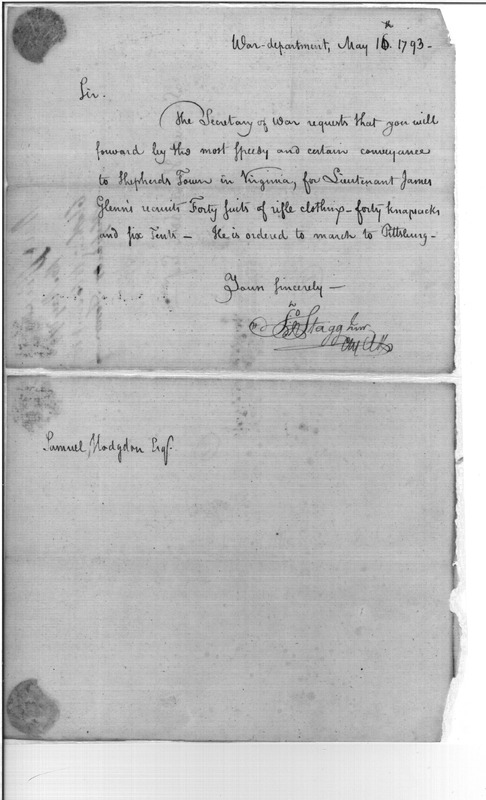 War-department, May 16th 1793-
Sir.
The Secretary of War requests that you will
forward by the most speedy and certain conveyance
to Shepherds Town in Virginia, for Lieutenant James
Glenn's recruits Forty suits of rifle clothing - forty knapsacks
and six Tents - He is ordered to march to Pittsburg -
Yours sincerely -
Jno Stagg Junr
Samuel Hodgdon Esqr.